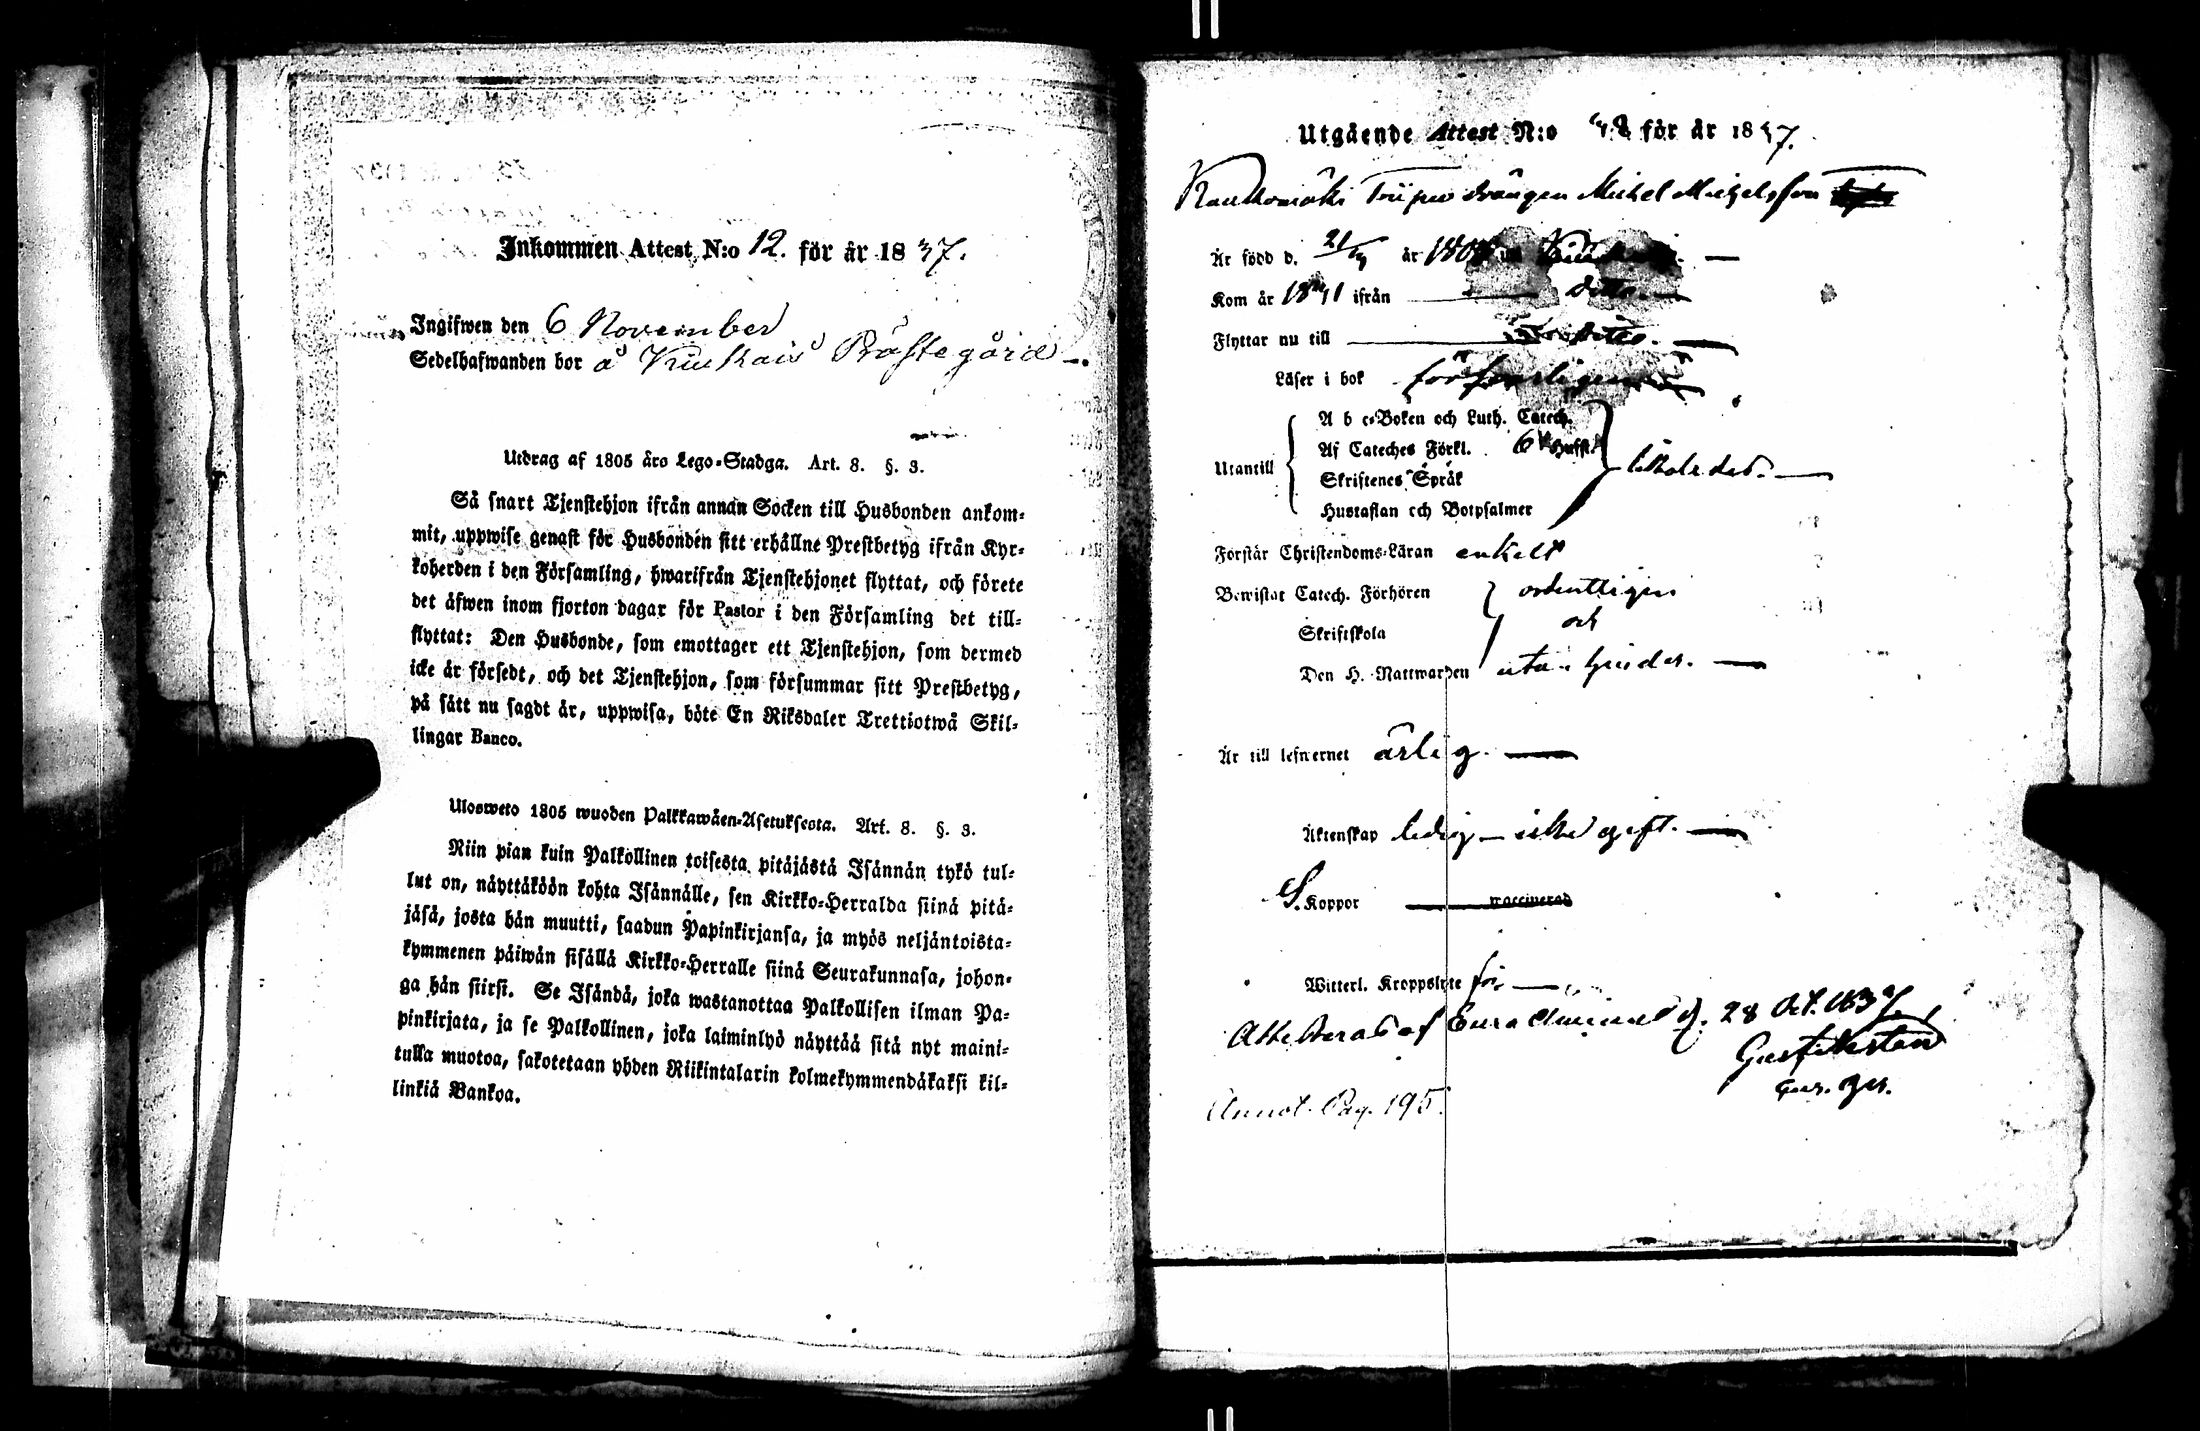 Inkommen Attest N:o 12. för år 1837.
Ingifwen den 6 November
Sedelhafwanden bor å Kiukais Prästegård
Utdrag af 1805 års Lego-Stadga. Art. 8. §. 3.
Så snart Tjenstehjon ifrån annan Socken till Husbonden ankom-
mit, uppwise genast för Husbonden sitt erhållne Prestbetyg ifrån Kyr-
koherden i den Församling, hwarifrån Tjenstehjonet flyttat, och förete
det äfwen inom fjorton dagar för Pastor i den Församling det till-
flyttat: Den Husbonde, som emottager ett Tjenstehjon, som dermed
icke är försedt, och det Tjenstehjon, som försummar sitt Prestbetyg,
på sätt nu sagdt är, uppwisa, böte En Riksdaler Trettiotwå Skil-
lingar Banco.
Ulosweto 1805 wuoden Palkkawäen-Asetuksesta. Art. 8. §. 3.
Niin pian kuin Palkollinen toisesta pitäjästä Isännän tykö tul-
lut on, näyttäköön kohta Isännälle, sen Kirkko-Herralda siinä pitä-
jäsä, josta hän muutti, saadun Papinkirjansa, ja myös neljäntoista-
kymmenen päiwän sisällä Kirkko-Herralle siinä Seurakunnasa, johon-
ga hän siirsi. Se Isändä, joka wastanottaa Palkollisen ilman Pa-
pinkirjata, ja se Palkollinen, joka laiminlyö näyttää sitä nyt maini-
tulla muotoa, sakotetaan yhden Riikintalarin kolmekymmendäkaksi kil-
linkiä Bankoa.
Utgående Attest N:o för år 1837.
drängen Michel Michelsson
Är född d. år
Kom år ifrån ditto.
Flyttar nu till ditto.
Läser i bok försvarligen
A b c-Boken och Luth. Catech.
Af Cateches Förkl. 6 Hufst.
Utantill likaledes.
Skriftenes Språk
Hustaflan och Botpsalmer
Förstår Christendoms-Läran enkelt
Bewistat Catech. Förhören ordentligen
och
Skriftskola
Den H. Nattwarden utan hinder.
Är till lefwernet ärlig.
Äktenskap ledig – icke gift.
S. Koppor vaccinerad
Witterl. Kroppslyte fri
Attesteras af Eura d. 28 Oct. 1837,
Annot. Pag. 195.